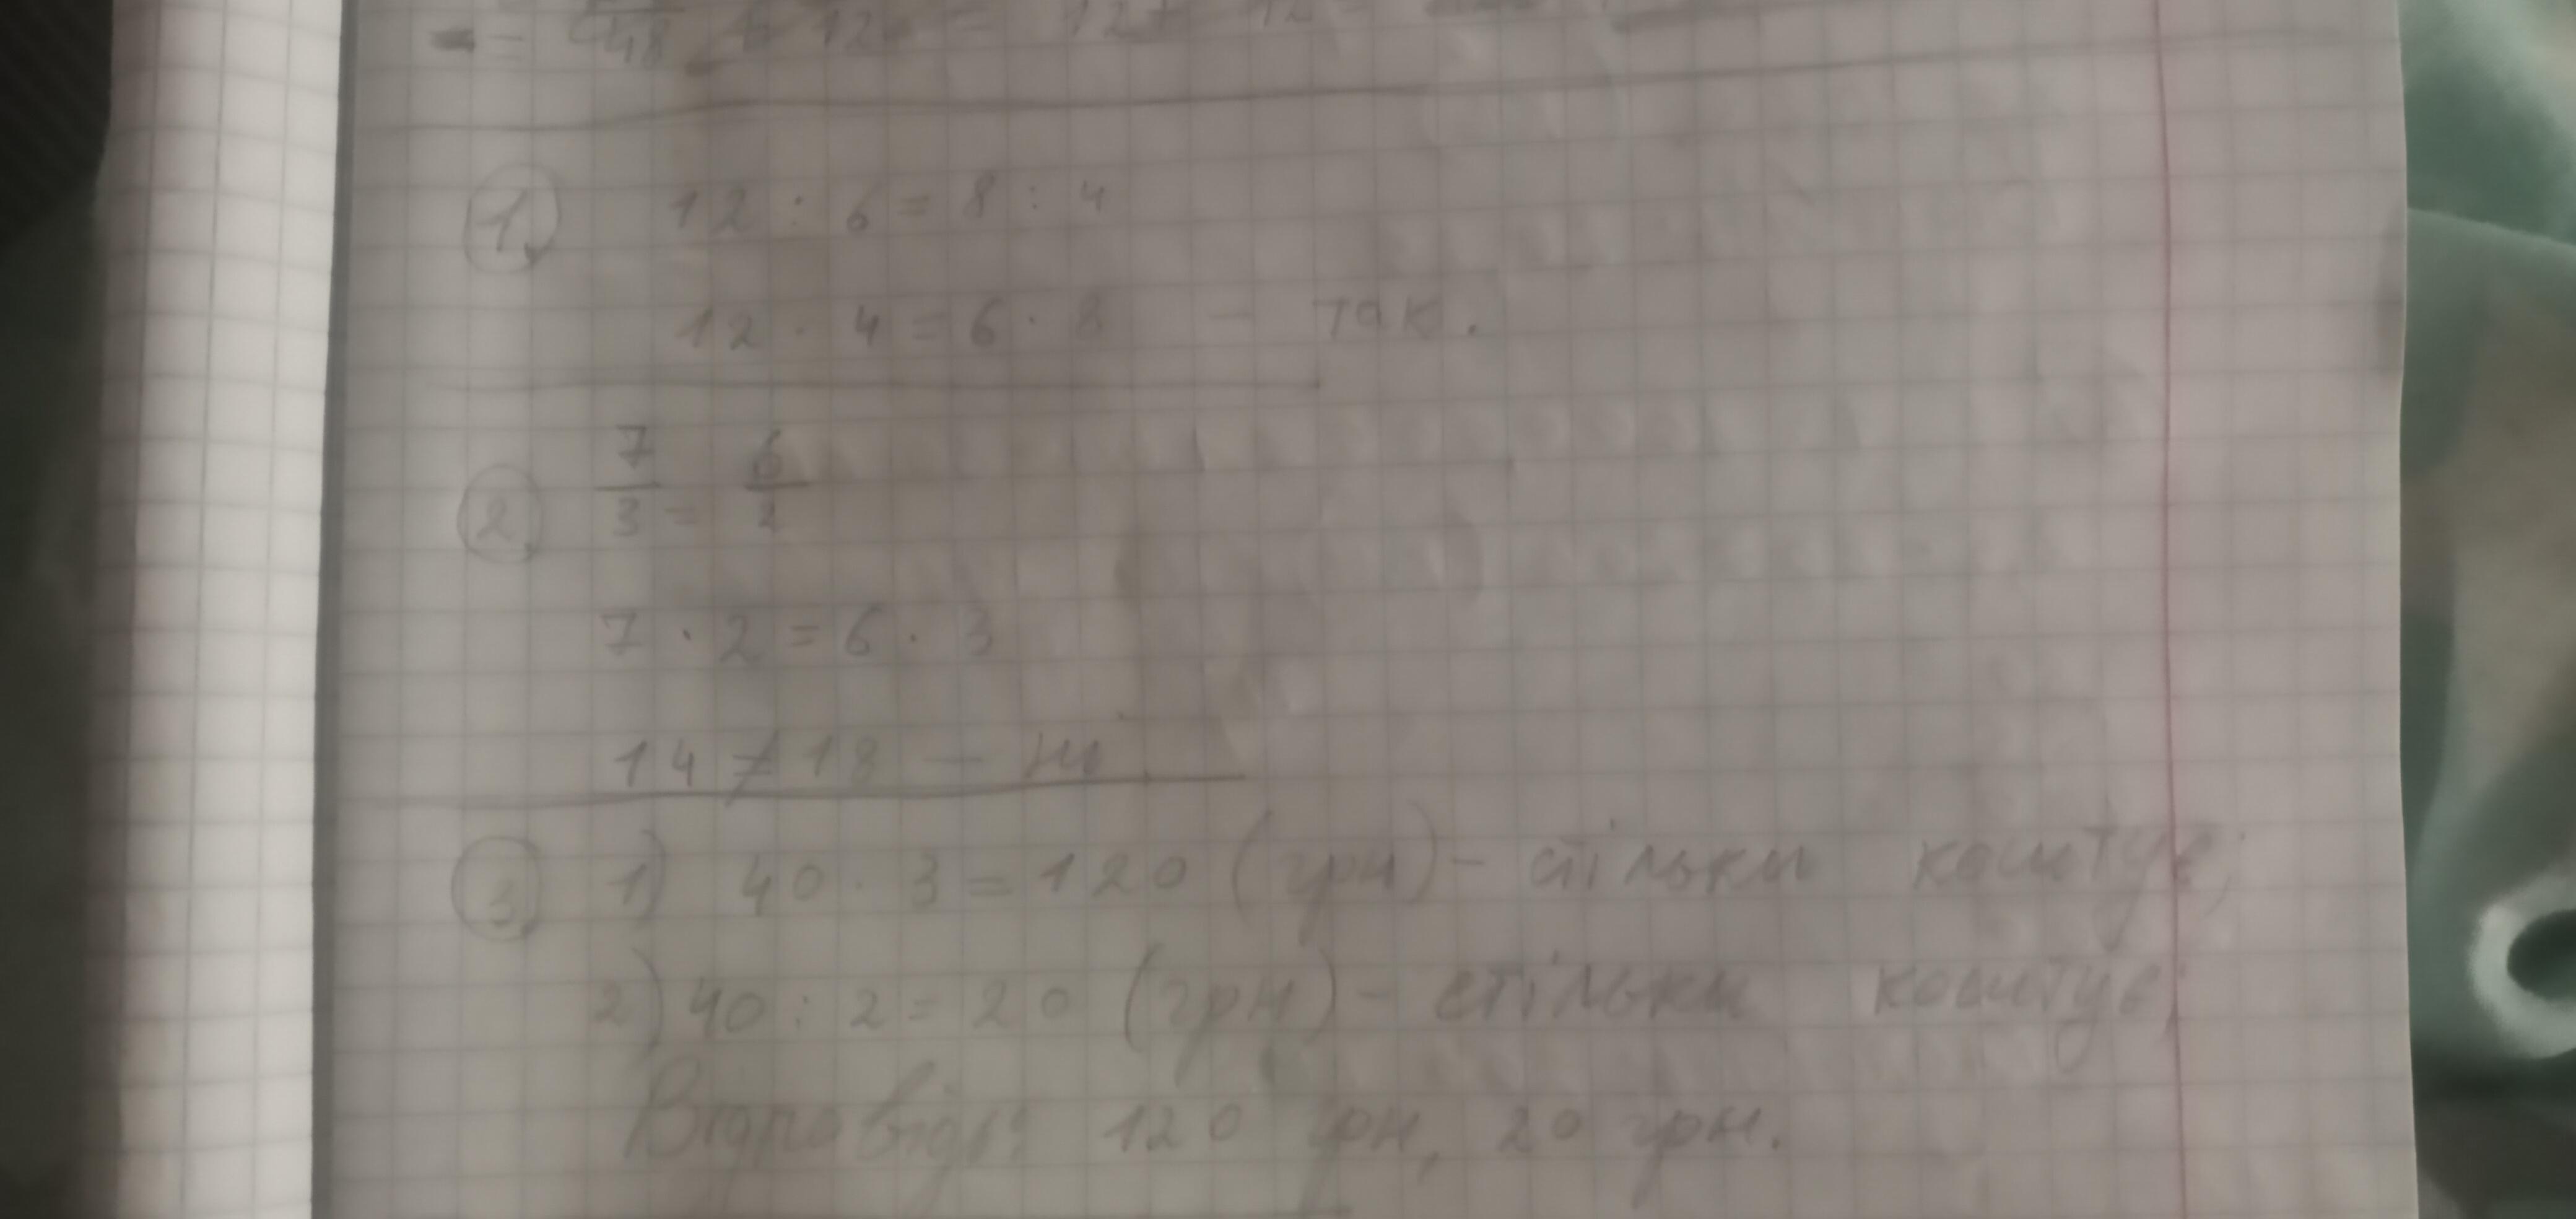 1. 12 : 6 = 8 : 4
12 · 4 = 6 · 8 - так.
2. 7/3 = 6/2
7 · 2 = 6 · 3
14 ≠ 18 - ні
3. 1) 40 · 3 = 120 (грн) - стільки коштує;
2) 40 : 2 = 20 (грн) - стільки коштує;
Відповідь: 120 грн, 20 грн.